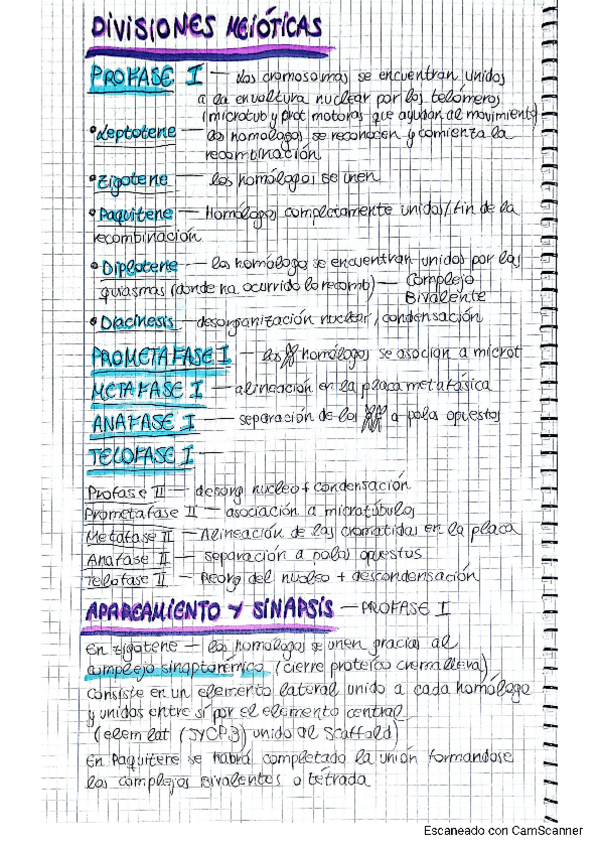 DIVISIONES MEIÓTICAS
PROFASE I — los cromosomas se encuentran unidos
a la envoltura nuclear por los telómeros
(microtub y prot motoras que ayudan al movimiento)
• Leptotene — los homólogos se reconocen y comienza la
recombinación.
• Zigotene — los homólogos se unen
• Paquitene — Homólogos completamente unidos/fin de la
recombinación
• Diplotene — los homólogos se encuentran unidos por las
quiasmas (donde ha ocurrido la recomb) — Complejo
Bivalente
• Diacinesis — desorganización nuclear/condensación
PROMETAFASE I — los homólogos se asocian a microt
METAFASE I — alineación en la placa metafásica
ANAFASE I — separación de los a polos opuestos
TELOFASE I —
Profase II — desorg nucleo + condensación
Prometafase II — asociación a microtúbulos
Metafase II — Alineación de las cromatidas en la placa
Anafase II — separación a polos opuestos
Telofase II — Reorg del nucleo + descondensación
APAREAMIENTO Y SINAPSIS — PROFASE I
En zigotene — los homólogos se unen gracias al
complejo sinaptonémico (cierre proteico cremallera)
Consiste en un elemento lateral unido a cada homólogo
y unidos entre sí por el elemento central
(elem lat (SYCP3) unido al Scaffold)
En Paquitene se habrá completado la unión formandose
los complejos Bivalentes o tétrada
Escaneado con CamScanner